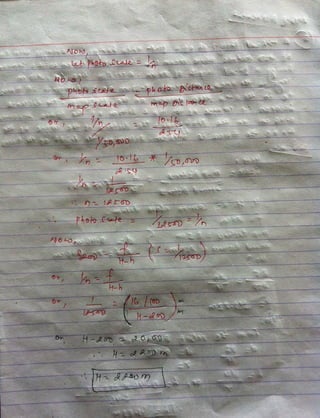 Now,
let photo scale = 1/n
photo scale / map scale = photo distance / map distance
or, (1/n) / (1/50,000) = 10.16 / 2.54
or, 1/n = 10.16 / 2.54 * 1/50,000
1/n = 1/12500
∴ n = 12500
∴ photo scale = 1/12500 = 1/n
Now,
= f/H-h (S = 1/12500)
or, 1/n = f/H-h
or, 1/12500 = (16/100 / H-200) m/m
or, H-200 = 20,00
∴ H = 2200m
∴ H = 2200m